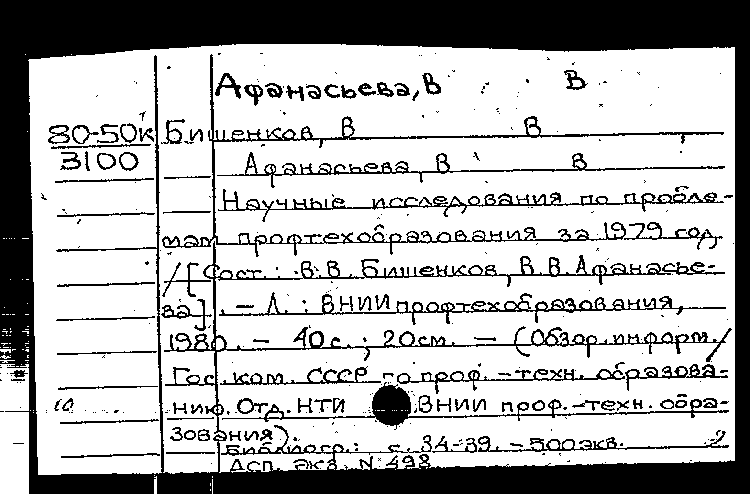 Афанасьева, В В
80-50к Бишенков, В В
3100 Афанасьева, В В
Научные исследования по пробле-
мам профтехобразования за 1979 год
/ [Сост.: В.В. Бишенков, В.В. Афанасье-
ва]. – Л.: ВНИИ профтехобразования,
1980. – 40 с.; 20 см. – (Обзор. информ. /
Гос. ком. СССР по проф.-техн. образова-
нию. Отд. НТИ ВНИИ проф.-техн. обра-
зования).
Библиогр.: с. 34-39. – 500 экз. 2
Асп. экз. N 498